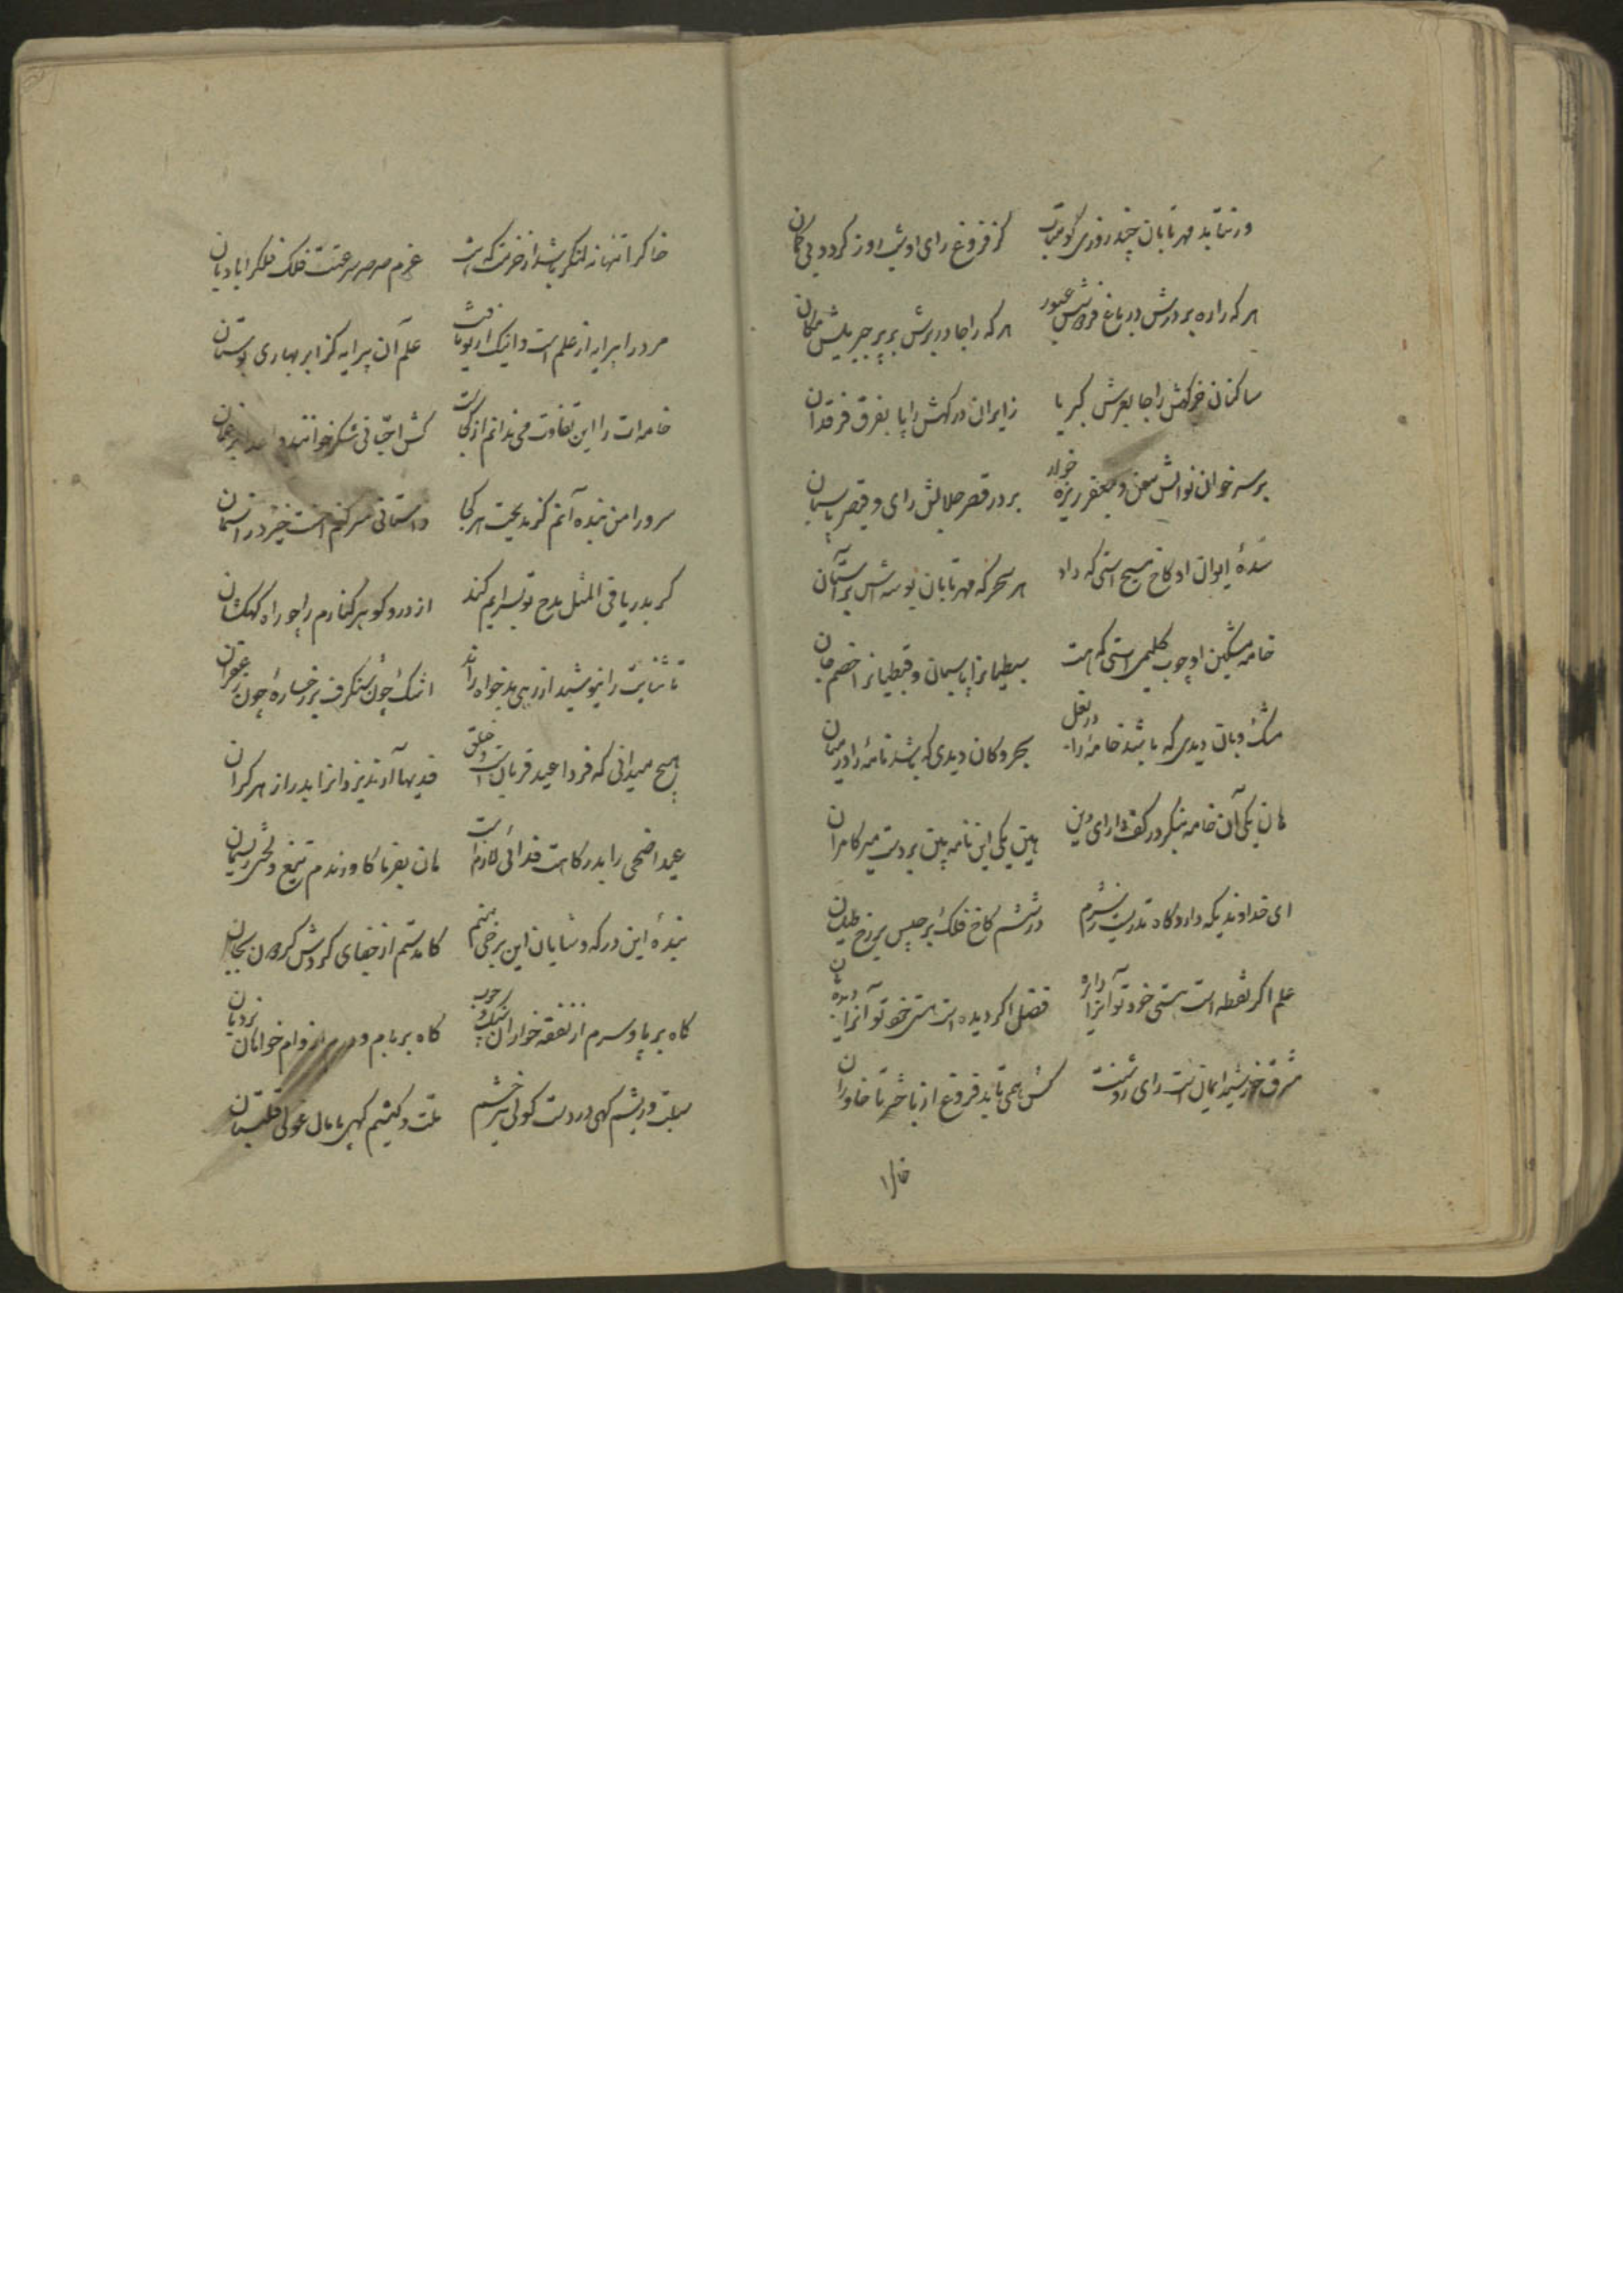 ور نتابد مهر تابان چند روزی کو متاب    کز فروغ رای او شب روز کردد بی کمان
هر که را ره بر درش در باغ فردوسش عبور    هر که را جا در برش بر پر جبریلش مکان
ساکنان خرکهش را جا بعرش کبریا    زایران درکهش را پا بفرق فرقدان
بر سر خوان نوالش معن و جعفر ریزه خوار    بر در قصر جلالش رای و قیصر پاسبان
سدهٔ ایوان او کاخ مسیح استی که داد    هر سحرکه مهر تابان بوسه‌اش بر آستان
خامه مشکین او چوب کلیم استی که هست    سبطیانرا پاسبان و قبطیانرا خصم جان
مشک و بان دیدی که باشد خامه را در بغل    بحر و کان دیدی که باشد نامه را در میان
هان یکی آن خامه بنکر در کف دارای دین    هین یکی این نامه بین بر دست میر کامران
ای خداوندیکه دارد کاه تدریست ز شرم    در ششم کاخ فلک برجیس بر رخ طیلسان
علم اکر نقطه است هستی خود تو آنرا دایره    فضل اکر دیده است هستی خود تو آنرا دیده‌بان
مشرق خورشید ایمان است رای روشنت    کش همی تابد فروغ از باختر تا خاوران
خاکرا
خاکرا تنها نه لنکر باشد از حزمت که هست    عزم صرصر سرعتت فلک فلکرا بادبان
مرد را پیرایه از علم است و اینک از تو یافت    علم آن پیرایه کز ابر بهاری بوستان
خامه‌ات را این تفاوت می ندانم از کجاست    کش احبا نی شکر خوانند و اعدا
سرورا من بنده آنم کز مدیحت هر کجا    داستانی سر کنم احسنت خیزد ز آسمان
کر بدریا فی المثل مدح تو بسرایم کند    از در و کوهر کنارم را چو راه کهکشان
تا ثنایت را نیوشید از رهی بدخواه راند    اشک چون شنکرف بر رخسارهٔ چون زعفران
هیچ میدانی که فردا عید قربانست و خلق    فدیها آرند یزدانرا بدر از هر کران
عید اضحی را بدرکاهت فدائی لازم است    هان بفرما کاورندم تیغ و لختی ریسمان
بندهٔ این درکه و شایان این برخی منم    کامدستم از جفای کردش کردون بجان
کاه بر پا و سرم از نفقه خواران سنک و چوب    کاه بر بام و درم از وام خواهان نردبان
سبلت و ریشم کهی در دست کولی پر ز خشم    ملت و کیشم کهی پامال غولی قلتبان